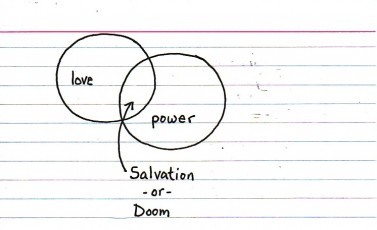 love
power
Salvation
-or-
Doom